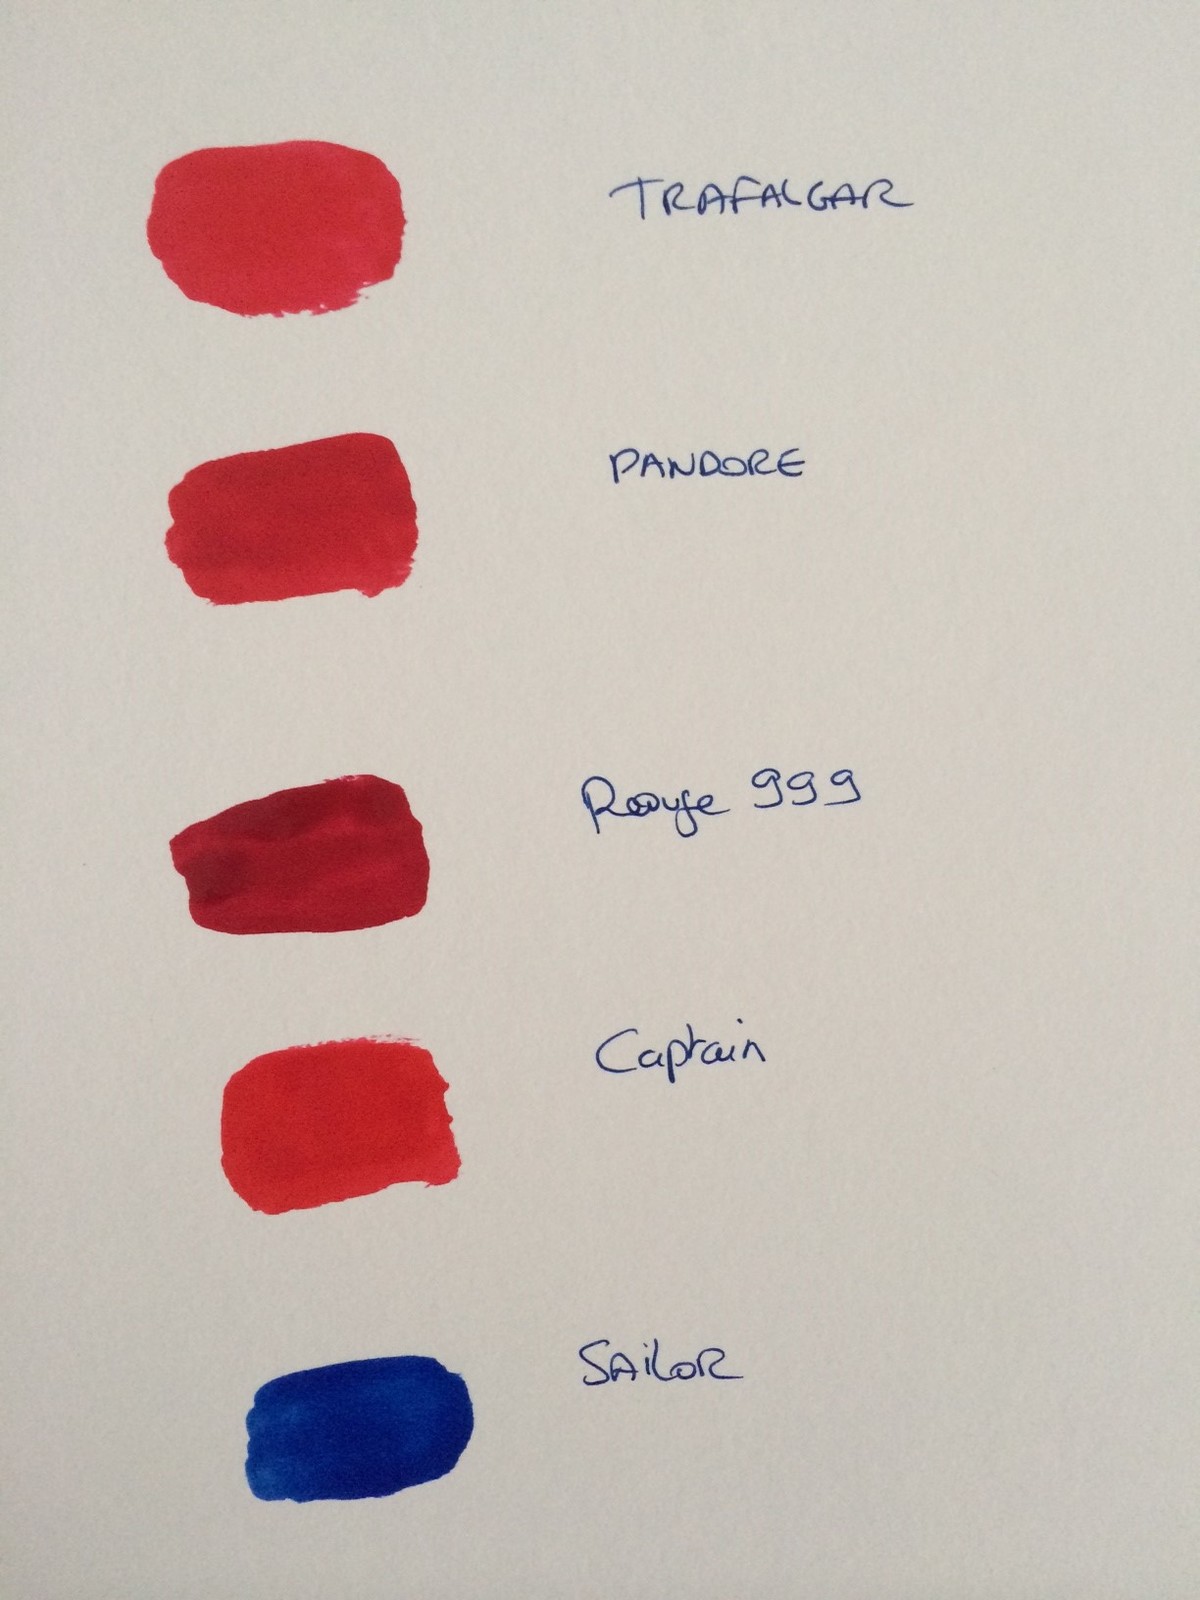 TRAFALGAR
PANDORE
Rouge 999
Captain
SAiLOR